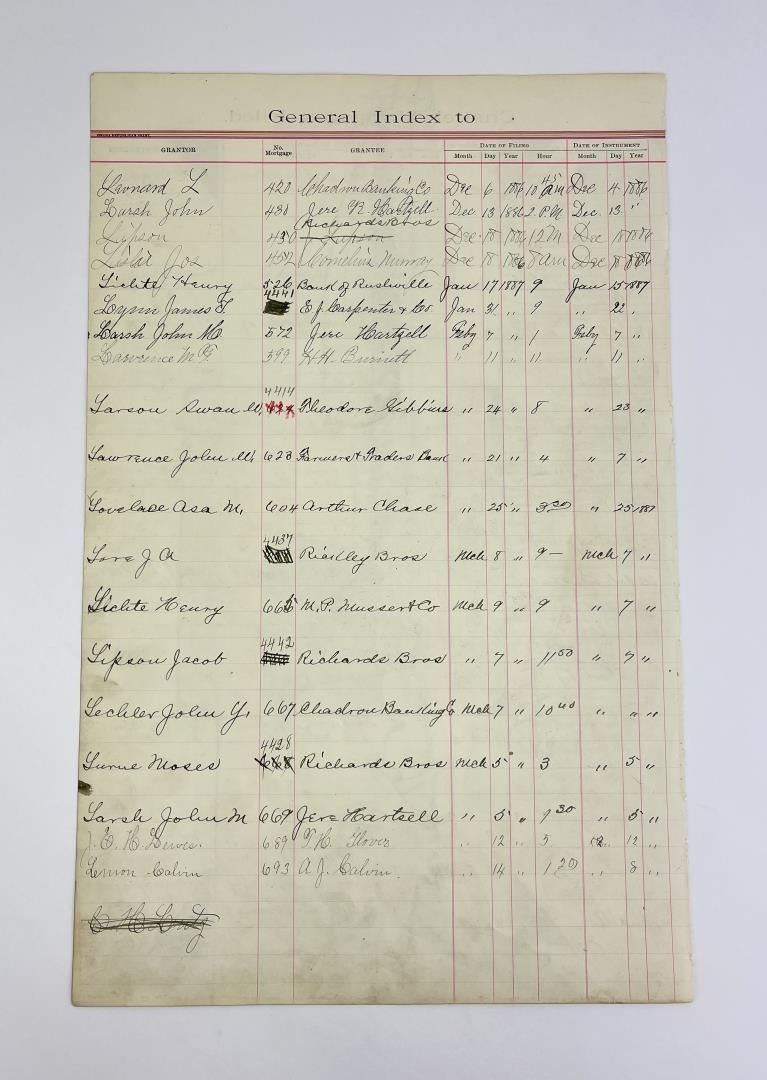 General Index to
OMAHA REPUBLICAN PRINT.
GRANTOR No. Mortgage GRANTEE DATE OF FILING DATE OF INSTRUMENT
Month Day Year Hour Month Day Year
Leonard L 420 Chadron Banking Co Dec 6 1886 10 45 am Dec 4 1886
Larsh John 430 Jere R. Hartzell Dec 13 1886 2 P.M Dec. 13 "
Richards Bros
Lipson 450 J Lipson Dec 18 1886 12 M Dec 18 1886
Jos Cornelius Murray Dec 18 1886 8 am Dec 18 1886
Lichte Henry 526 Bank of Rushville Jan 17 1887 9 Jan 15 1887
4441
Lynn James T. E J Carpenter & Co. Jan 31 " 9 " 22 "
Larsh John M. 572 Jere Hartzell Feby 7 " 1 Feby 7 "
Lawrence M 599 H H. Burnett " 11 " 11 " 11 "
4414
Larson Swan Theodore Gibbins " 24 " 8 " 23 "
Lawrence John M. 623 Farmers & Traders Bank " 21 " 4 " 7 "
Lovelace Asa M. 604 Arthur Chase " 25 " 3 30 " 25 1887
4437
Lore J A Bros Mch 8 " 9 — Mch 7 "
Lichte Henry 665 M. P. Musser & Co Mch 9 " 9 " 7 "
4442
Lipson Jacob Richards Bros " 7 " 11 00 " 7 "
Lechler John Y. 667 Chadron Banking Co Mch 7 " 10 40 " " "
4428
Lurue Moses 668 Richards Bros Mch 5 " 3 " 5 "
Larsh John M 669 Jere Hartsell " 5 " 9 30 " 5 "
J. C. H. 689 T. H. Glover " 12 " 5 " 12 "
Lemon Calvin 693 A. J. Calvin " 14 " 1 20 " 8 "
C H Lutz